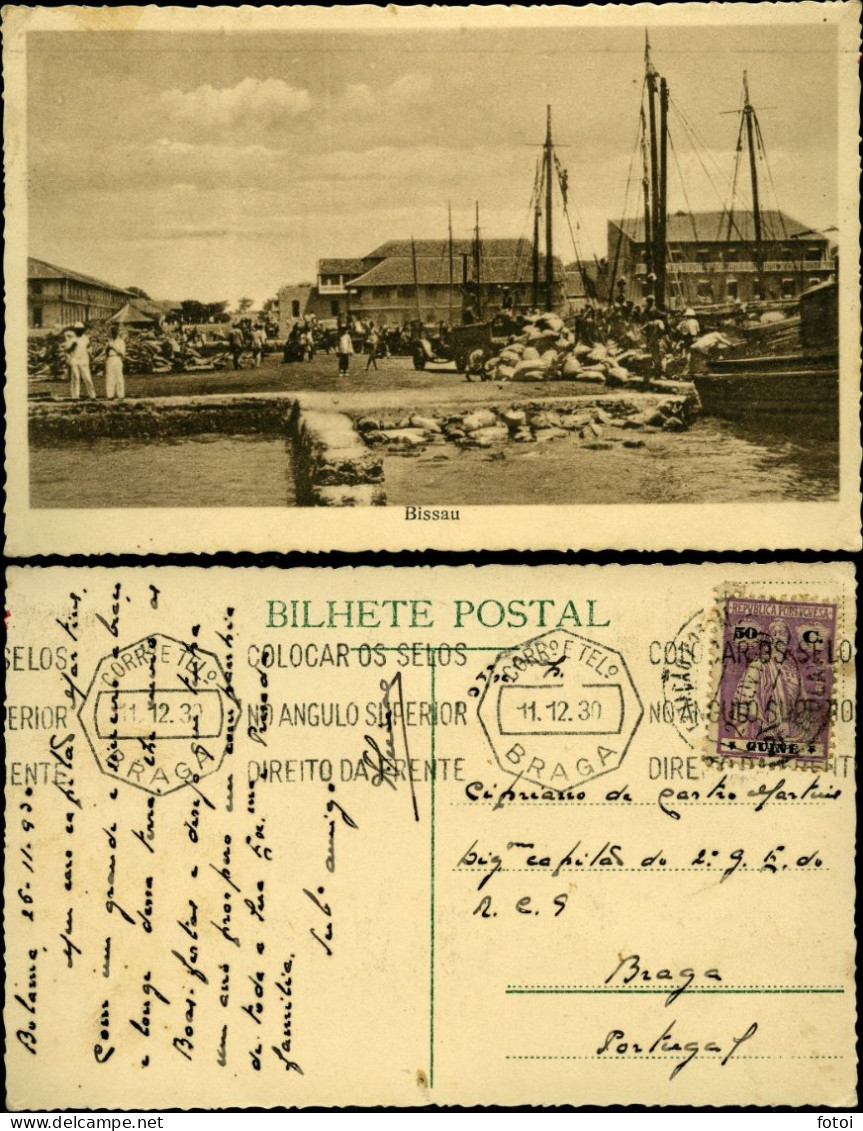 Bissau
BILHETE POSTAL
SELOS
COLOCAR OS SELOS
COLOCAR OS SELO
ERIOR
NO ANGULO SUPERIOR
NO ANGULO SUPERIO
ENTE
DIREITO DA FRENTE
DIRE NTE
CORRO E TELO
11.12.30
BRAGA
CORRO E TELO
11.12.30
BRAGA
REPUBLICA PORTUGUESA
50 C.
GUINÉ
Bolama 26-11-930
Meu caro capitão Martins,
Com um grande e sincero abraço
e longe dessa terra, lhe envio as
Boas-festas e desejo que tenha
um ano prospero em companhia
de toda a sua Exma. Prezada
familia.
Subo amigo
Cipriano de Castro Martins
Digmo capitão do 2º G. E. do
R. C. 9
Braga
Portugal
fotoi